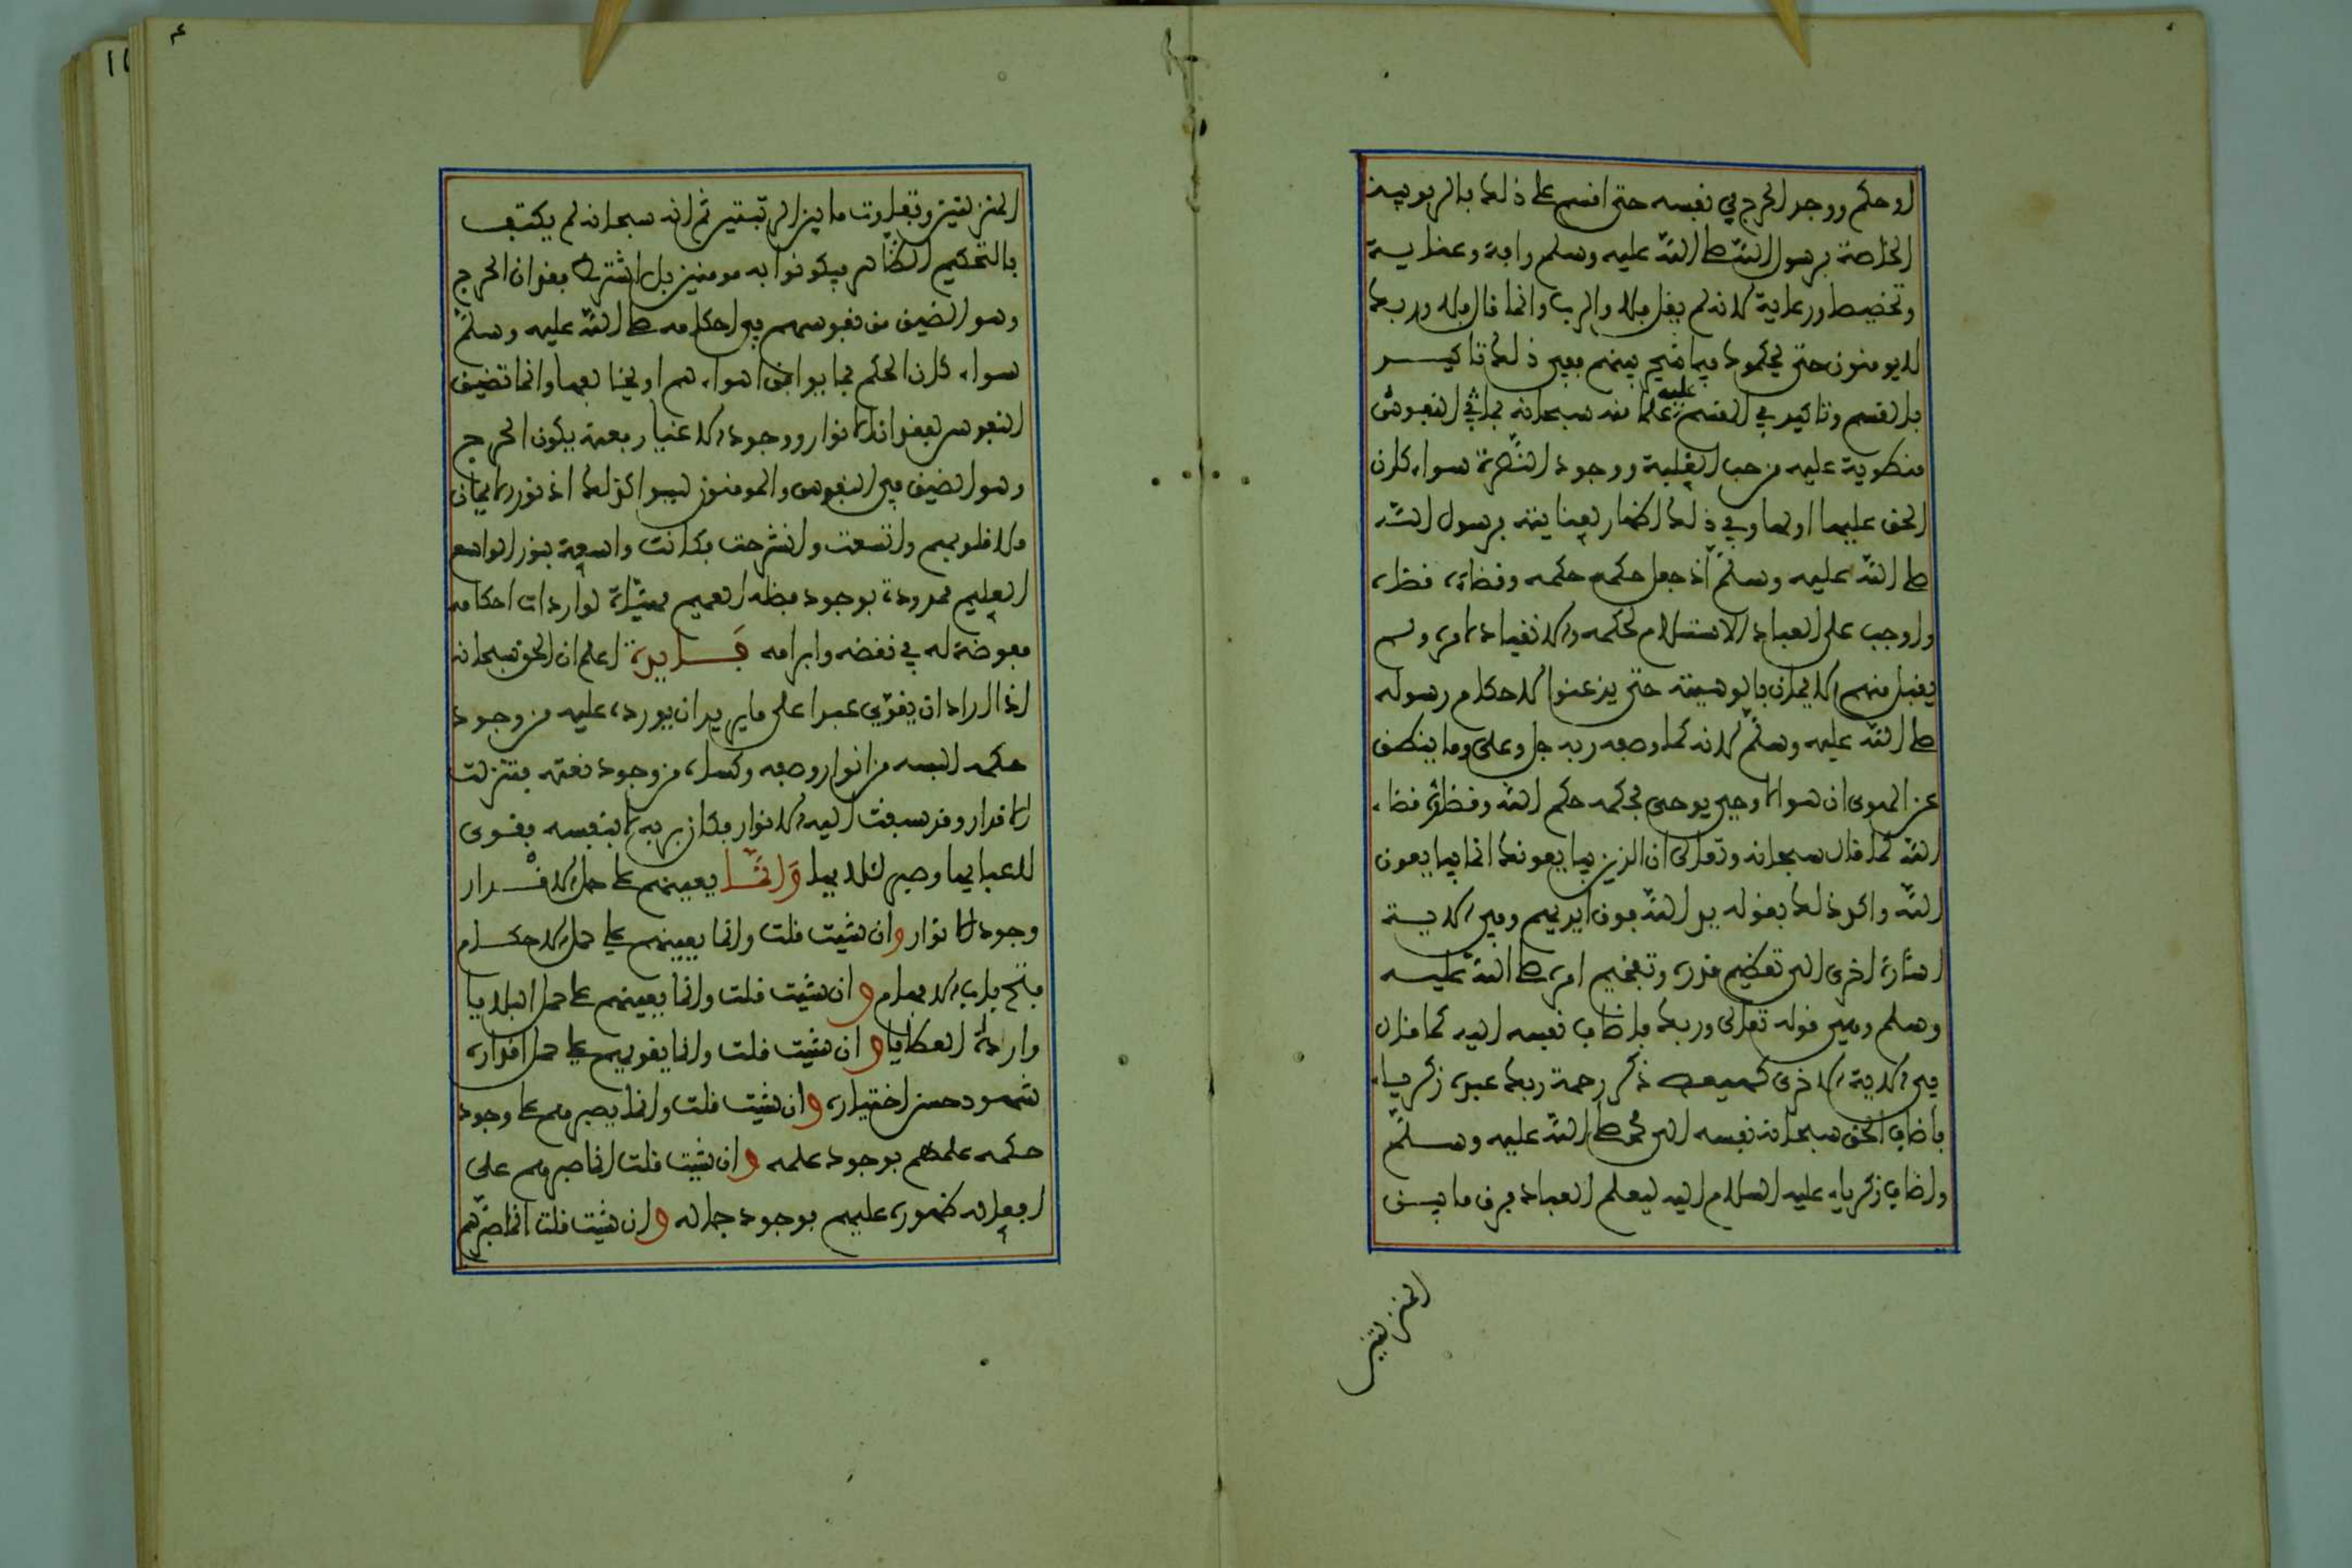 او حكم ووجد الحرج في نفسه حتى اقسم على ذلك بالربوبية
الخاصة برسول الله صلى الله عليه وسلم رافة وعناية
وتخصيصا ورعاية لانه لم يقل فلا والرب وانما قال فلا وربك
لا يومنون حتى يحكموك فيما شجر بينهم ففي ذلك تاكيد
بالقسم وتاكيد في المقسم عليه علما منه سبحانه بما في النفوس
منطوية عليه من حب الغلبة ووجود النصرة سواء كان
الحق عليها او لها وفي ذلك اظهار لعنايته برسول الله
صلى الله عليه وسلم اذ جعل حكمه حكمه وقضاءه قضاءه
واوجب على العباد الاستسلام لحكمه والانقياد لامره ولم
يقبل منهم الايمان بالوهيته حتى يذعنوا لاحكام رسوله
صلى الله عليه وسلم لانه كما وصفه ربه جل وعلى وما ينطق
عن الهوى ان هو الا وحي يوحى فحكمه حكم الله وقضاؤه قضاء
الله كما قال سبحانه وتعالى ان الذين يبايعونك انما يبايعون
الله واكد ذلك بقوله يد الله فوق ايديهم وفي الاية
اشارة اخرى الى تعظيم قدره وتفخيم امره صلى الله عليه
وسلم وهي قوله تعالى وربك فاضاف نفسه اليه كما قال
في الاية الاخرى كهيعص ذكر رحمة ربك عبده زكرياء
فاضاف الحق سبحانه نفسه الى محمد صلى الله عليه وسلم
واضاف زكرياء عليه السلام اليه ليعلم العباد فرق ما بين
المنزلتين
المنزلتين وتفاوت ما بين الرتبتين ثم انه سبحانه لم يكتف
بالتحكيم الظاهر فيكونوا به مومنين بل اشترط فقدان الحرج
وهو الضيق من نفوسهم في احكامه صلى الله عليه وسلم
سواء كان الحكم بما يوافق اهواءهم او يخالفها وانما تضيق
النفوس لفقدان الانوار ووجود الاغيار فعنه يكون الحرج
وهو الضيق في النفوس والمومنون ليسوا كذلك اذ نور الايمان
ملا قلوبهم واتسعت وانشرحت فكانت واسعة بنور الواسع
العليم ممدودة بوجود فضله العميم مهيئة لواردات احكامه
مفوضة له في نقضه وابرامه فايدة اعلم ان الحق سبحانه
اذا اراد ان يقوي عبدا على ما يريد ان يورده عليه من وجود
حكمه البسه من انوار وصفه وكساه من وجود نعته فتنزلت
الاقدار وقد سبقت اليه الانوار فكان بربه لا بنفسه فقوى
للاعبايها وصبر للاوايها وانما يعينهم على حمل الاقدار
وجود الانوار وان شيت قلت وانما يعينهم على حمل الاحكام
فتح باب الافهام وان شيت قلت وانما يعينهم على حمل البلايا
واردات العطايا وان شيت قلت وانما يقويهم على حمل اقداره
شهود حسن اختياره وان شيت قلت وانما يصبرهم على وجود
حكمه علمهم بوجود علمه وان شيت قلت انما صبرهم على
افعاله ظهوره عليهم بوجود جماله وان شيت قلت انما صبرهم